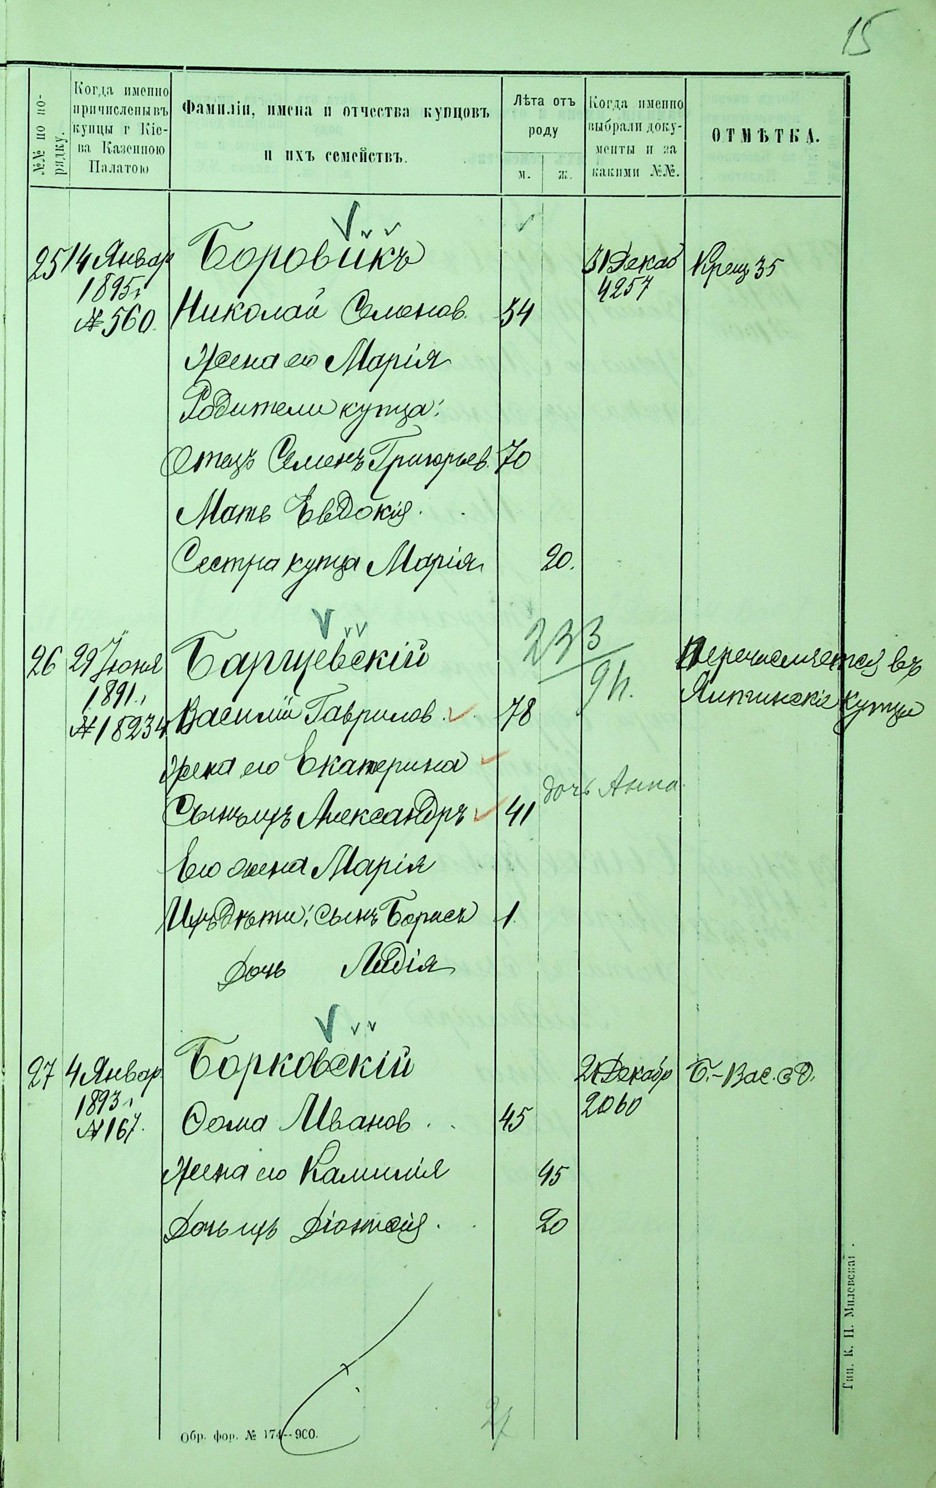 15
№№ по по-
рядку.
Когда именно
причислены въ
купцы г Кіе-
ва Казенною
Палатою
Фамиліи, имена и отчества купцовъ
и ихъ семействъ.
Лѣта отъ
роду
м. ж.
Когда именно
выбрали доку-
менты и за
какими №№.
ОТМѢТКА.
25 14 Январ Боровикъ 31 Декаб Крещ 35
1895 г 4257
№ 560. Николай Семенов. 34
Жена его Марія
Родители купца:
Отецъ Семенъ Григорьев. 70
Мать Евдокія.
Сестра купца Марія 20.
26 29 Іюня Баргуевскій 233 Перечисляется въ
1891 г. 9 п. купцы
№ 18234 Василій Гаврилов. 78
Жена его Екатерина
дочь Анна
Сынъ ихъ Александръ 41
Его жена Марія
Ихъ дѣти: сынъ Борисъ 1
Дочь Лидія
27 4 Январ Борковскій 21 Декабр Б.-Вас.
1893 г. 2060
№ 167. Фома Иванов. 45
Жена его Камилія 45
Дочь ихъ 20
Обр. фор. № 174—900.
Тип. К. Н. Милевскаі.